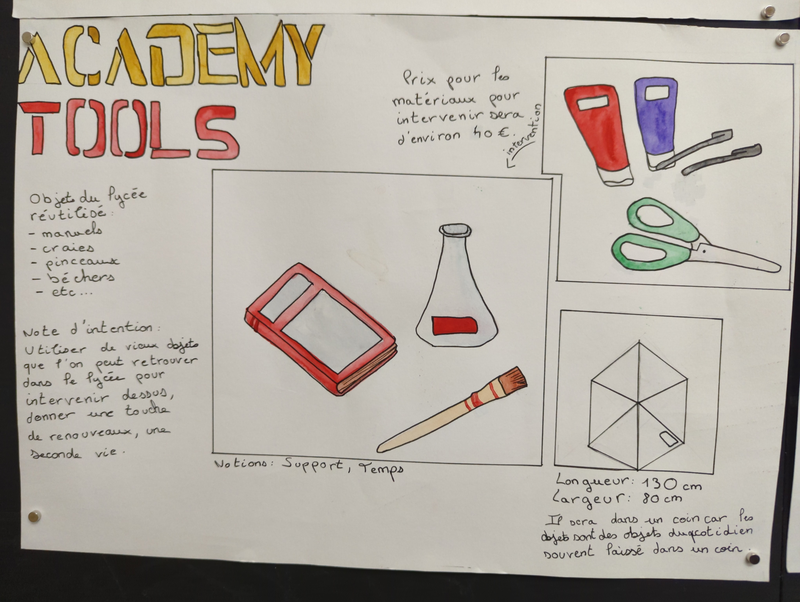 ACADEMY
TOOLS
Objets du lycée
réutilisé:
- manuels
- craies
- pinceaux
- béchers
- etc...
Note d'intention:
Utiliser de vieux objets
que l'on peut retrouver
dans le lycée pour
intervenir dessus,
donner une touche
de renouveaux, une
seconde vie.
Prix pour les
matériaux pour
intervenir sera
d'environ 40 €.
intervention
Notions: Support, Temps
Longueur: 130 cm
Largeur: 80 cm
Il sera dans un coin car les
objets sont des objets du quotidien
souvent laissé dans un coin.